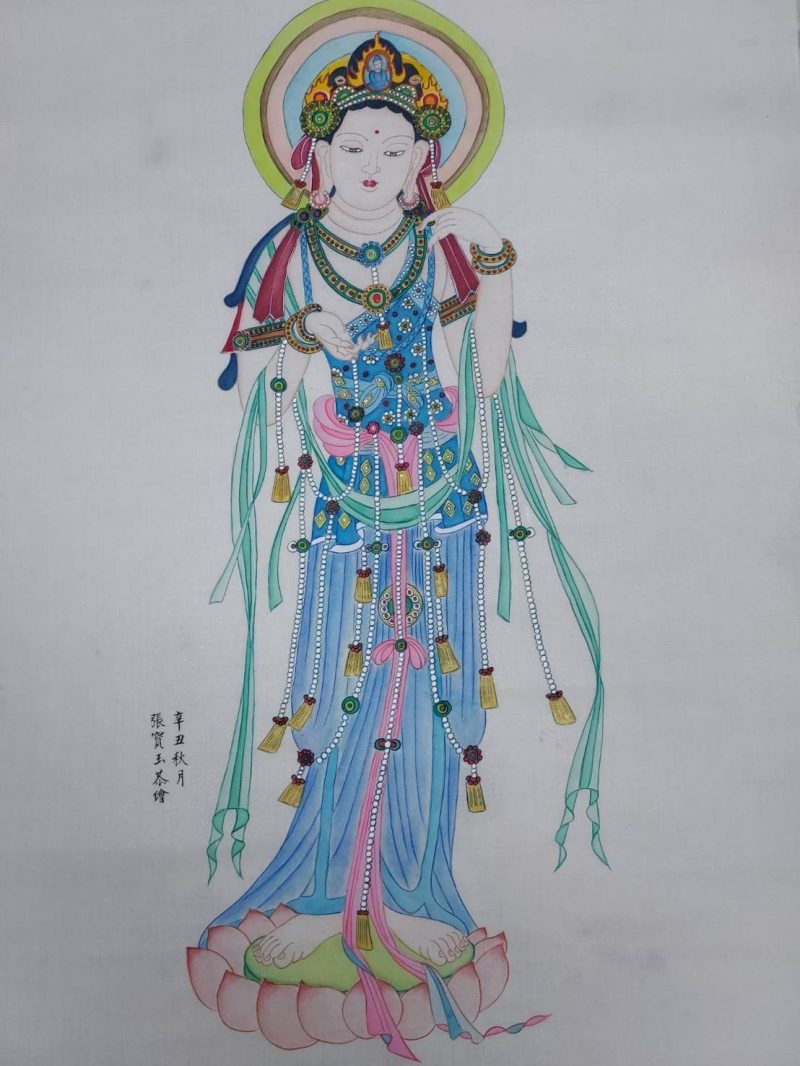 辛丑秋月
張寶玉恭繪